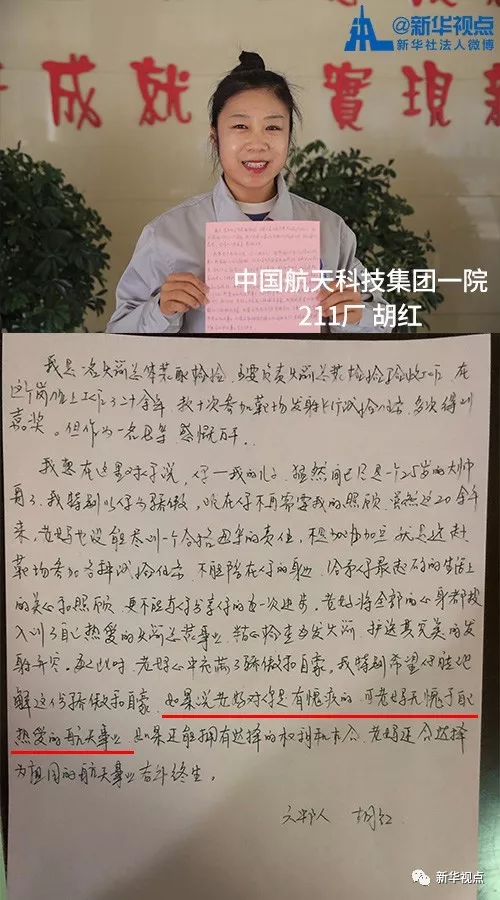 @新华视点
新华社法人微博
成就 實現
中国航天科技集团一院
211厂 胡红
我是一名火箭总体装配检验，主要负责火箭总装检验验收工作，在
这个岗位上工作了二十余年，数十次参加靶场发射飞行试验任务，多次得到
嘉奖。但作为一名母亲 感慨万千。
我想在这里对你说，仔一我的儿子。猛然间已是一个25岁的大帅
哥了，我特别以你为骄傲，现在你不再需要我的照顾。虽然这20余年
来，老妈也没能尽到一个合格母亲的责任，
靶场参加各种试验任务，不能陪在你的身边，给予你最起码的生活上
的关心和照顾，更不能与你分享你的每一次进步。老妈将全部的心身都投
入到了自己热爱的火箭总装事业，
射升空。每此时，老妈心中充满了骄傲和自豪。我特别希望你能理
解这份骄傲和自豪，如果说老妈对你是有愧疚的，可老妈无愧于自己
热爱的航天事业，如果还能拥有选择的权利和机会，老妈还会选择
为祖国的航天事业奋斗终生。
胡红
新华视点